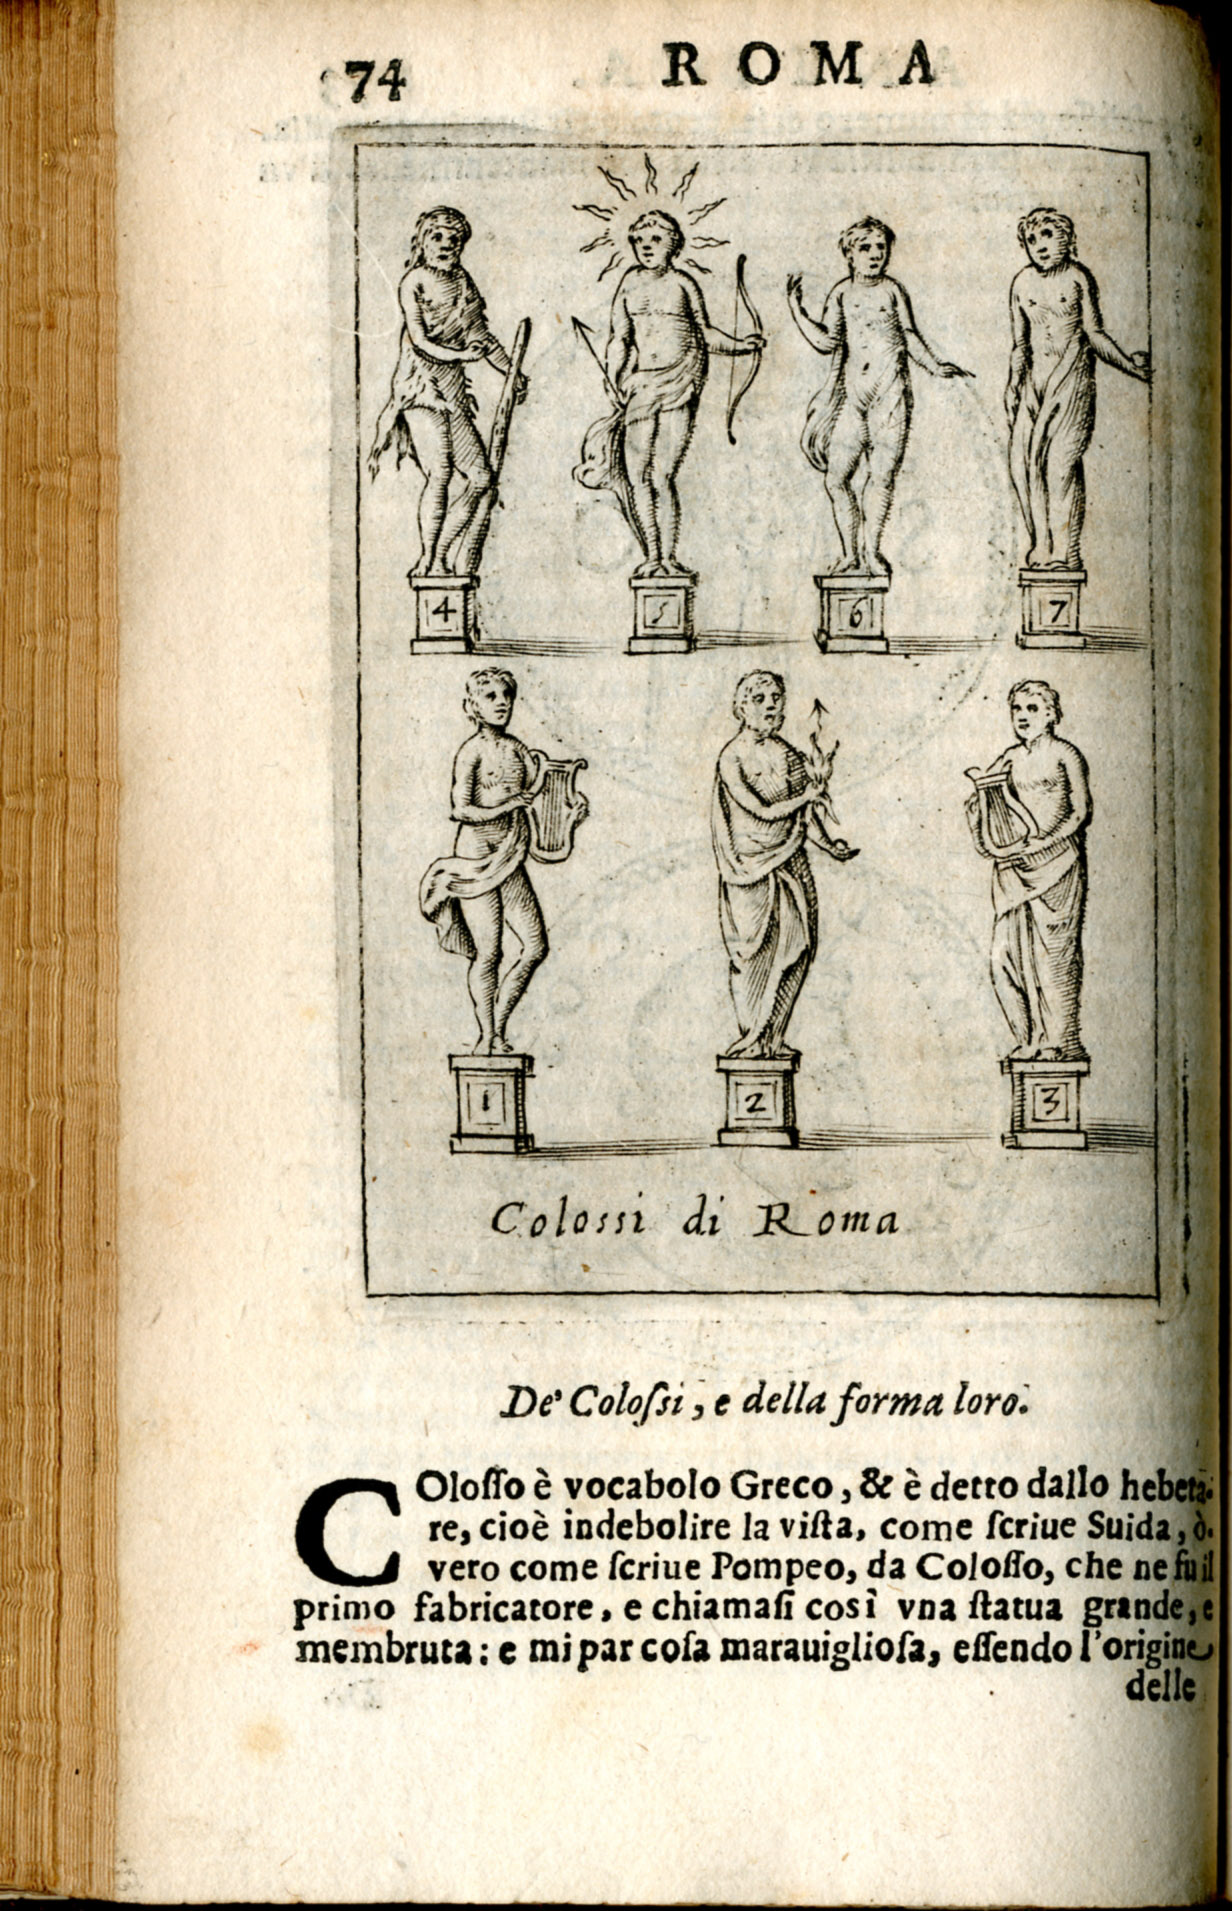 74
ROMA
4 5 6 7
1 2 3
Colossi di Roma
De' Coloſsi, e della forma loro.
COloſſo è vocabolo Greco, & è detto dallo hebeta-
re, cioè indebolire la viſta, come ſcriue Suida, ò.
vero come ſcriue Pompeo, da Coloſſo, che ne fu il
primo fabricatore, e chiamaſi così vna ſtatua grande, e
membruta: e mi par coſa marauiglioſa, eſſendo l'origine
delle